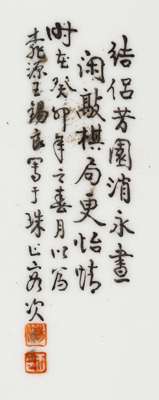 結侶芳園消永晝
閑敲棋局更怡情
時在癸卯年之春月以為
王錫良寫于珠山客次